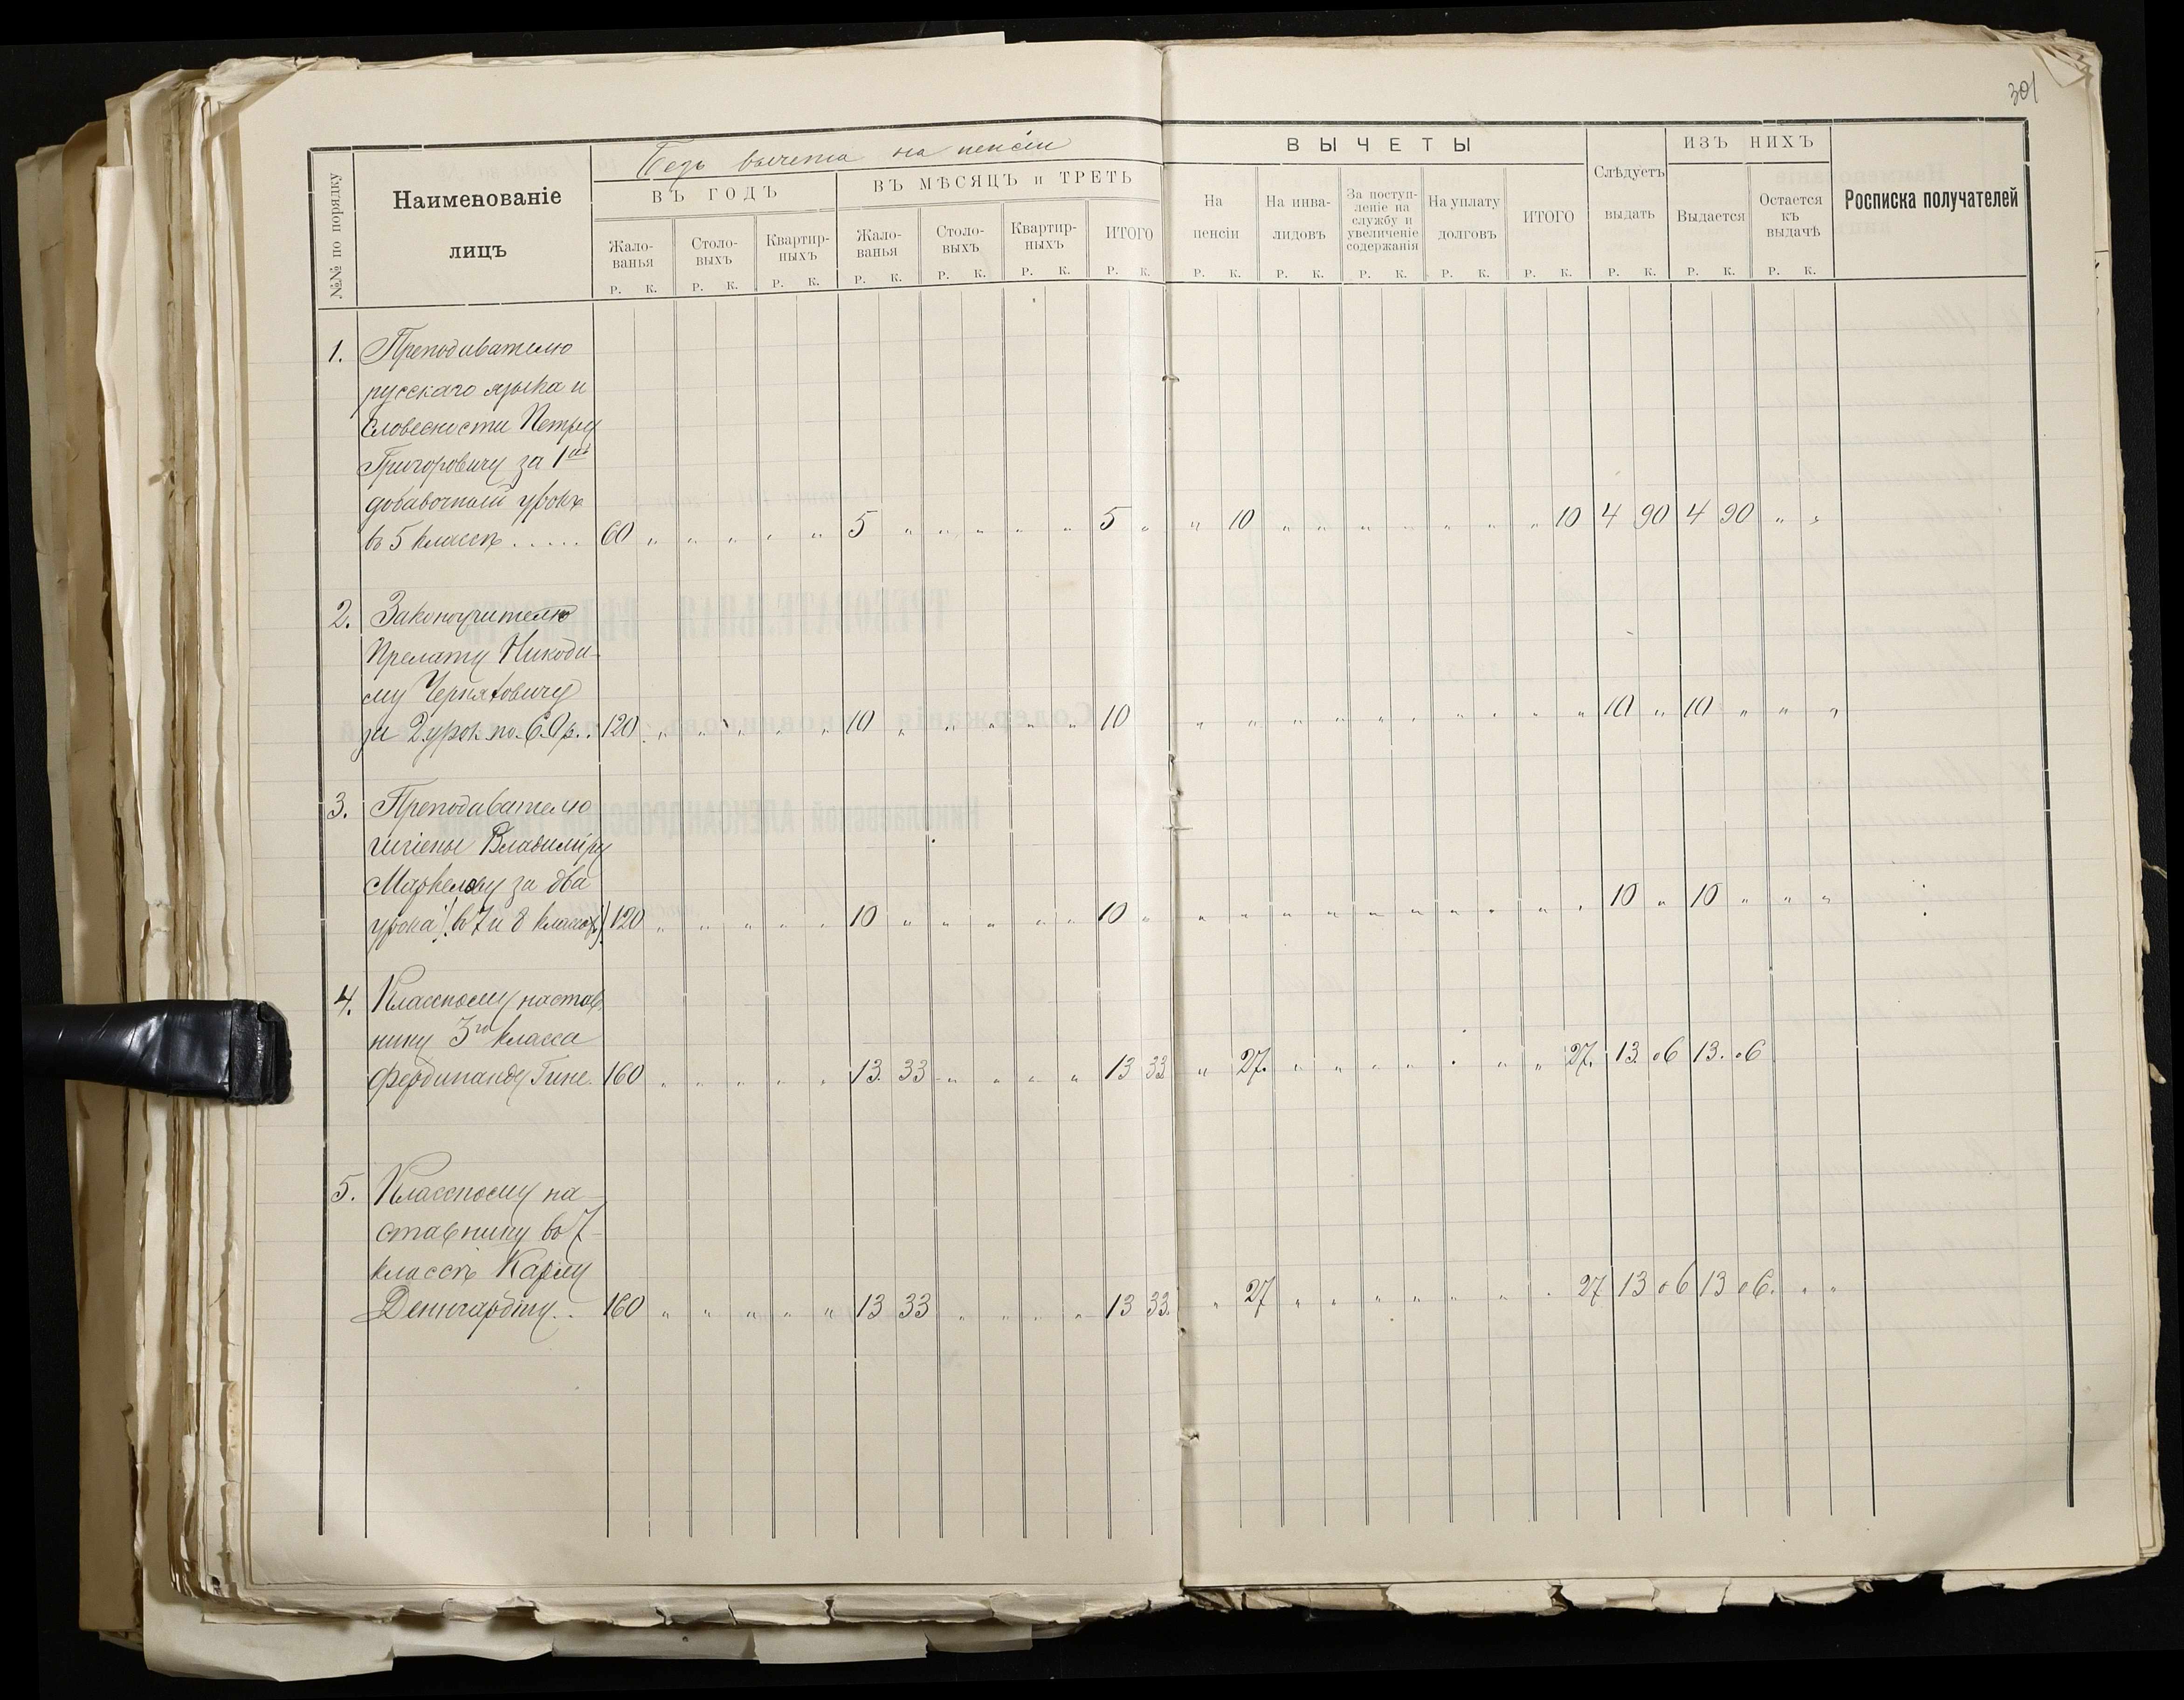 301
№№ по порядку
Наименованіе
лицъ
Безъ вычета на пенсіи
ВЪ ГОДЪ
ВЪ МѢСЯЦЪ и ТРЕТЬ
Жало-
ванья
Столо-
выхъ
Квартир-
ныхъ
Жало-
ванья
Столо-
выхъ
Квартир-
ныхъ
ИТОГО
Р. К. Р. К. Р. К. Р. К. Р. К. Р. К. Р. К.
ВЫЧЕТЫ
На
пенсіи
На инва-
лидовъ
За поступ-
леніе на
службу и
увеличеніе
содержанія
На уплату
долговъ
ИТОГО
Слѣдуетъ
выдать
ИЗЪ НИХЪ
Выдается
Остается
къ
выдачѣ
Росписка получателей
Р. К. Р. К. Р. К. Р. К. Р. К. Р. К. Р. К. Р. К.
1. Преподавателю
русскаго языка и
словесности Петру
Григоровичу за 1ый
добавочный урокъ
въ 5 классѣ ..... 60 " " " " " 5 " " " " " 5 " " 10 " " " " " " " 10 4 90 4 90 " "
2. Законоучителю
Прелату Никоди-
му Черняховичу
за 2 урок. по 60 р. . 120 " " " " " 10 " " " " " 10 " " " " " " " " " " 10 " 10 " " "
3. Преподавателю
гигіены Владиміру
Маркелову за два
урока (въ 7 и 8 классахъ) 120 " " " " " 10 " " " " " 10 " " " " " " " " " " " 10 " 10 " " "
4. Классному настав
нику 3го класса
Фердинанду Гине. 160 " " " " " 13. 33 " " " " 13 33 " 27. " " " " " " " 27. 13 06 13. 06
5. Классному на-
ставнику въ 7-
классѣ Карлу
.. 160 " " " " " 13 33 " " " " 13 33. " 27 " " " " " " " 27 13 06 13 06. " "